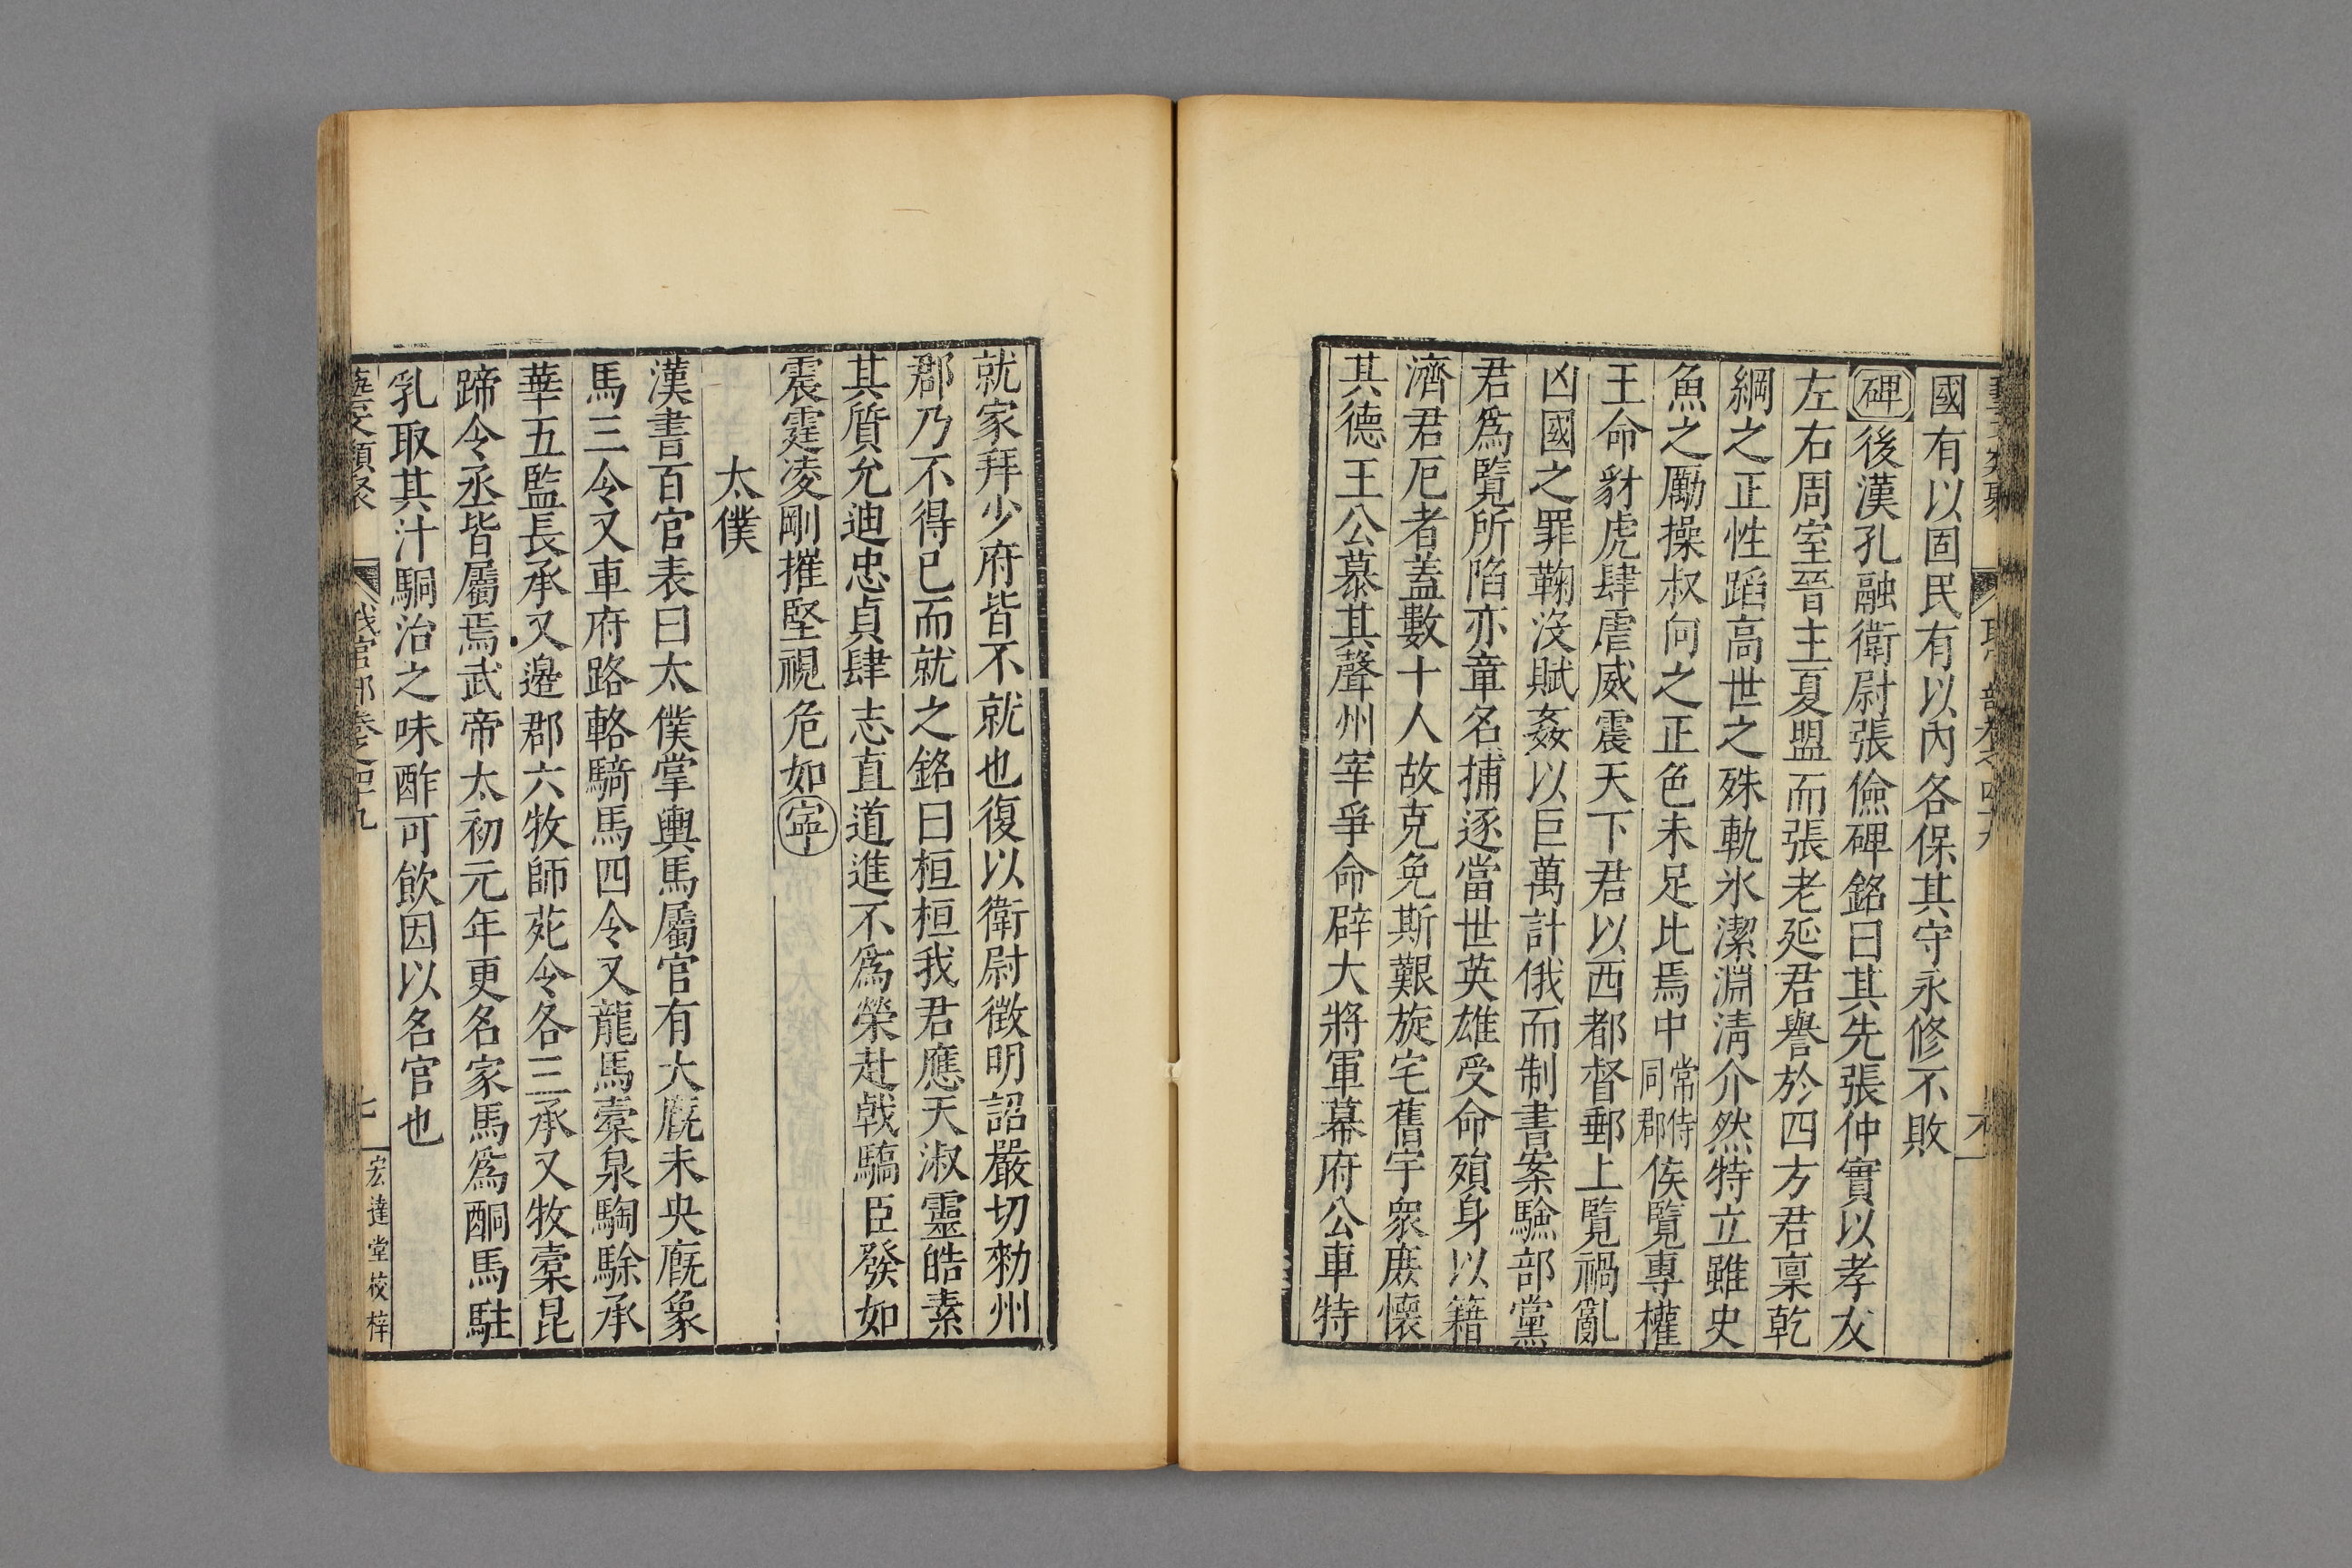 國有以固民有以內各保其守永修不敗
碑後漢孔融衛尉張儉碑銘曰其先張仲實以孝友
左右周室晉主夏盟而張老延君譽於四方君稟乾
綱之正性蹈高世之殊軌氷潔淵淸介然特立雖史
魚之勵操叔向之正色未足比焉中常侍同郡侯覽專權
王命豺虎肆虐威震天下君以西都督郵上覽禍亂
凶國之罪鞠沒賦姦以巨萬計俄而制書案驗部黨
君爲覽所陷亦章名捕逐當世英雄受命殞身以籍
濟君厄者蓋數十人故克免斯艱旋宅舊宇衆庶懷
其德王公慕其聲州宰爭命辟大將軍幕府公車特
就家拜少府皆不就也復以衛尉徵明詔嚴切勑州
郡乃不得已而就之銘曰桓桓我君應天淑靈皓素
其質允迪忠貞肆志直道進不爲榮赴戟驕臣發如
震霆凌剛摧堅視危如寧
太僕
漢書百官表曰太僕掌輿馬屬官有大廐未央廐象
馬三令又車府路軨騎馬四令又龍馬槖泉騊駼承
華五監長承又邊郡六牧師菀令各三承又牧槖昆
蹄令丞皆屬焉武帝太初元年更名家馬爲酮馬駐
乳取其汁駧治之味酢可飲因以名官也
藝文類聚 職官部卷之四十九 七 宏達堂校梓